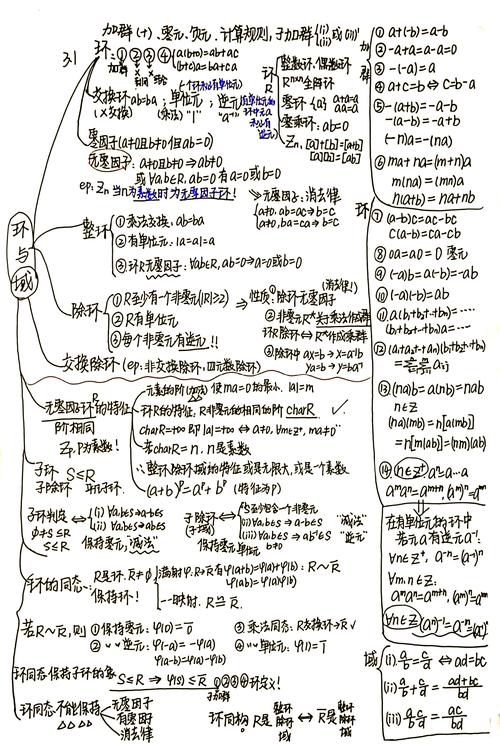 加群(+)、零元、负元、计算规则,子加群{(i)(ii)或(iii)'
3.1
环: ① ② ③ ④ {a(b+c)=ab+ac
(b+c)a=ba+ca
加群
交换环 ab=ba; 单位元; 逆元
(×交换) (乘法) "1" "a⁻¹"
环R
整数环、偶数环
R^{n×n} 全阵环
零环 {0} a+a=a
aa=a
零乘环: ab=0
Zn, [a]+[b]=[a+b]
[a][b]=[ab]
零因子(a≠0且b≠0但ab=0)
无零因子: a≠0且b≠0 ⇒ ab≠0
或 ∀ab∈R, ab=0 有 a=0 或 b=0
ep: Zn 当n为素数时为无零因子环!
⇒ 无零因子: 消去律
{a≠0, ab=ac⇒b=c
a≠0, ba=ca⇒b=c
环与域
整环
① 乘法交换, ab=ba
② 有单位元: 1a=a1=a
③ 环R无零因子: ∀ab∈R, ab=0⇒a=0或b=0
除环
① R至少有一个非零元(|R|≥2)
② R有单位元
③ 每个非零元有逆元!!
⇒ 性质: ① 除环无零因子 (消去律!)
② 非零元 R*关于乘法作成群
环R除环 ⇔ R*作成乘群
③ 除环中 ax=b → x=a⁻¹b
ya=b → y=ba⁻¹
交换除环 (ep: 非交换除环, 四元数除环)
无零因子环R的特征
阶相同
Zp, P为素数!
元素的阶(加法) 使ma=0的最小, |a|=m
环R的特征, R非零元的相同的阶 charR ✓.
charR=+∞ 即 |a|=+∞ ⇔ a≠0, ∀m∈Z⁺, ma≠0
若charR=n, n是素数
∴ 整环除环域的特征或是无限大, 或是一个素数
(a+b)^p=a^p+b^p (特征为P)
子环 S≤R
子除环
子环判定
φ≠S≤R
S≤R
⇔ {(i) ∀ab∈S⇒a-b∈S
(ii) ∀ab∈S⇒ab∈S
保持零元, "减法"
子除环
(子域)
⇔ {S至少包含一个非零元
(ii) ∀ab∈S ⇒ a-b∈S "减法"
(iii) ∀ab∈S ⇒ ab⁻¹∈S "逆元"
b≠0
保持零元单位元
环的同态
R是环. R̄≠φ
保持环!
满射φ: R→R̄ 有 φ(a+b)=φ(a)+φ(b)
φ(ab)=φ(a)φ(b) : R~R̄
一一映射. R≅R̄
若R~R̄, 则
① 保持零元: φ(0)=0̄
② 〃 逆元: φ(-a)=-φ(a)
φ(a-b)=φ(a)-φ(b)
③ 乘法同态: R交换环→R̄√
④ 〃 单位元: φ(1)=1̄
环同态保持子环的象
S≤R ⇒ φ(S)≤R̄ ①②③④环定义!
子加群
环同态不能保持
△△△△
无零因子
有零因子
消去律
环同构. R是 整环 除环 域 ⇔ R̄是 整环 除环 域
加群
① a+(-b)=a-b
② -a+a=a-a=0
③ -(-a)=a
④ a+c=b ⇔ c=b-a
⑤ -(a+b)=-a-b
-(a-b)=-a+b
(-n)a=-(na)
⑥ ma+na=(m+n)a
m(na)=(mn)a
n(a+b)=na+nb
环
⑦ (a-b)c=ac-bc
c(a-b)=ca-cb
⑧ 0a=a0=0 零元
⑨ (-a)b=a(-b)=-ab
⑩ (-a)(-b)=ab
⑪ a(b1+b2+…+bn)=……
(b1+b2+…+bn)a=……
⑫ (a1+a2+…+an)(b1+b2+…+bn)
⑬ (na)b=a(nb)=nab
n∈Z
(na)(mb)=n[a(mb)]
=n[m(ab)]=(nm)(ab)
⑭ n∈Z⁺ aⁿ=a…a
aᵐaⁿ=aᵐ⁺ⁿ, (aᵐ)ⁿ=aᵐⁿ
在有单位元的环中
若元a有逆元a⁻¹:
∀n∈Z⁺, a⁻ⁿ=(a⁻¹)ⁿ
∀m.n∈Z:
aᵐaⁿ=aᵐ⁺ⁿ, (aᵐ)ⁿ=aᵐⁿ
∀n∈Z (aⁿ)⁻¹=a⁻ⁿ=(a⁻¹)ⁿ
域
(i). a/b=c/d ⇔ ad=bc
(ii) a/b+c/d=(ad+bc)/bd
(iii) a/b c/d=ac/bd